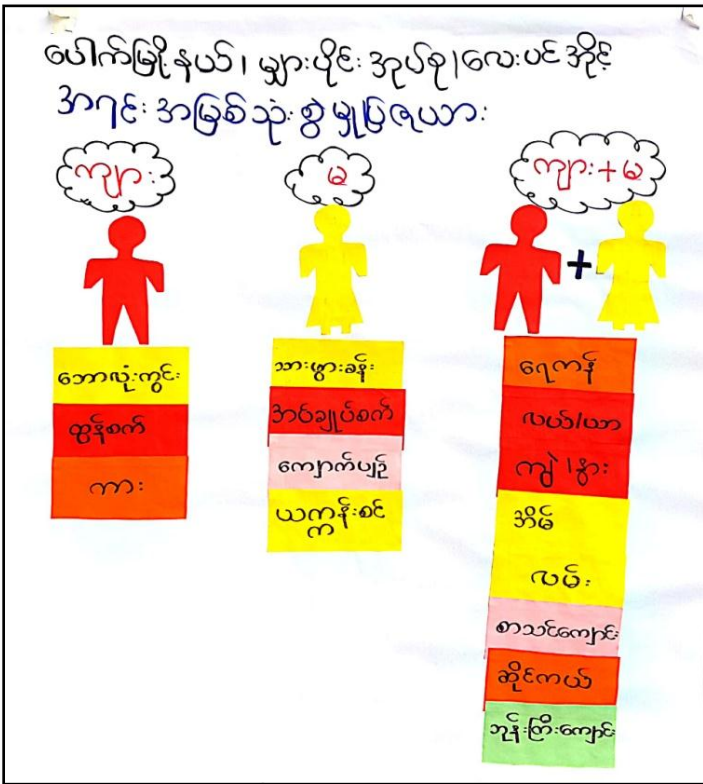 ပေါက်မြို့နယ်၊ မျှားပိုင်းအုပ်စု၊လေးပင်အိုင့်
အရင်းအမြစ်သုံးစွဲမှုပြဇယား
ကျား
မ
ကျား+မ
+
ဘောလုံးကွင်း
ထွန်စက်
ကား
သားဖွားခန်း
အပ်ချုပ်စက်
ကျောက်ပျဉ်
ယက္ကန်းစင်
ရေကန်
လယ်/ယာ
ကျွဲ၊နွား
အိမ်
လမ်း
စာသင်ကျောင်း
ဆိုင်ကယ်
ဘုန်းကြီးကျောင်း